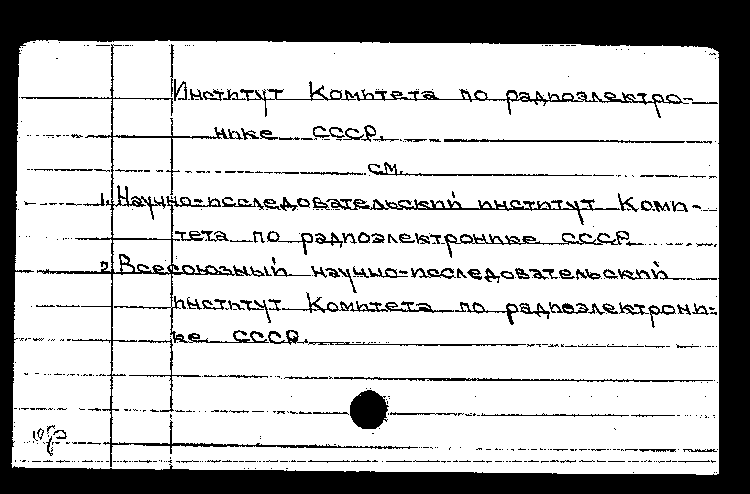 Институт Комитета по радиоэлектро-
нике СССР.
см.
1. Научно-исследовательский институт Коми-
тета по радиоэлектронике СССР
2. Всесоюзный научно-исследовательский
институт Комитета по радиоэлектрони-
ке СССР.